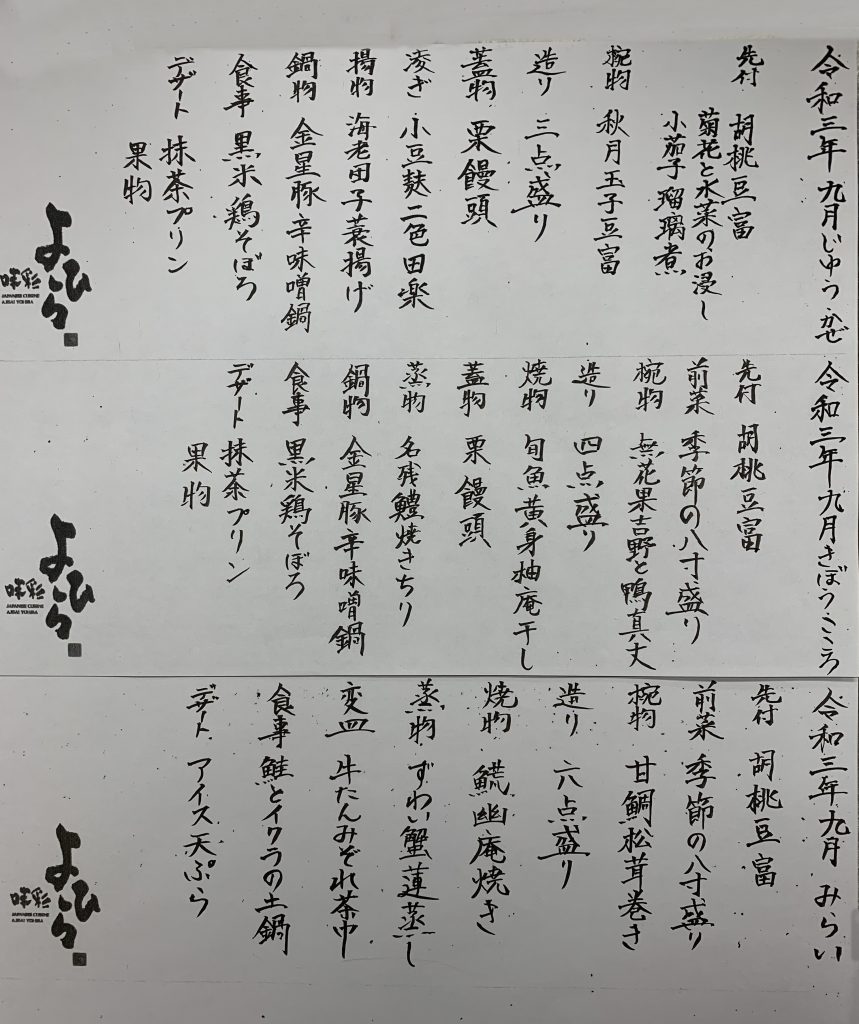 令和三年九月じゆうかぜ
先付 胡桃豆富
菊花と水菜のお浸し
小茄子瑠璃煮
椀物 秋月玉子豆富
造り 三点盛り
蓋物 栗饅頭
凌ぎ 小豆麸二色田楽
揚物 海老田子蓑揚げ
鍋物 金星豚辛味噌鍋
食事 黒米鶏そぼろ
デザート 抹茶プリン
果物
よひら
彩味
JAPANESE CUISINE
AJISAI YOHIRA
令和三年九月きぼうこころ
先付 胡桃豆富
前菜 季節の八寸盛り
椀物 無花果吉野と鴨真丈
造り 四点盛り
焼物 旬魚黄身柚庵干し
蓋物 栗饅頭
蒸物 名残鱧焼きちり
鍋物 金星豚辛味噌鍋
食事 黒米鶏そぼろ
デザート 抹茶プリン
果物
よひら
彩味
JAPANESE CUISINE
AJISAI YOHIRA
令和三年九月 みらい
先付 胡桃豆富
前菜 季節の八寸盛り
椀物 甘鯛松茸巻き
造り 六点盛り
焼物 鰆幽庵焼き
蒸物 ずわい蟹蓮蒸し
変皿 牛たんみぞれ茶巾
食事 鮭とイクラの土鍋
デザート アイス天ぷら
よひら
彩味
JAPANESE CUISINE
AJISAI YOHIRA